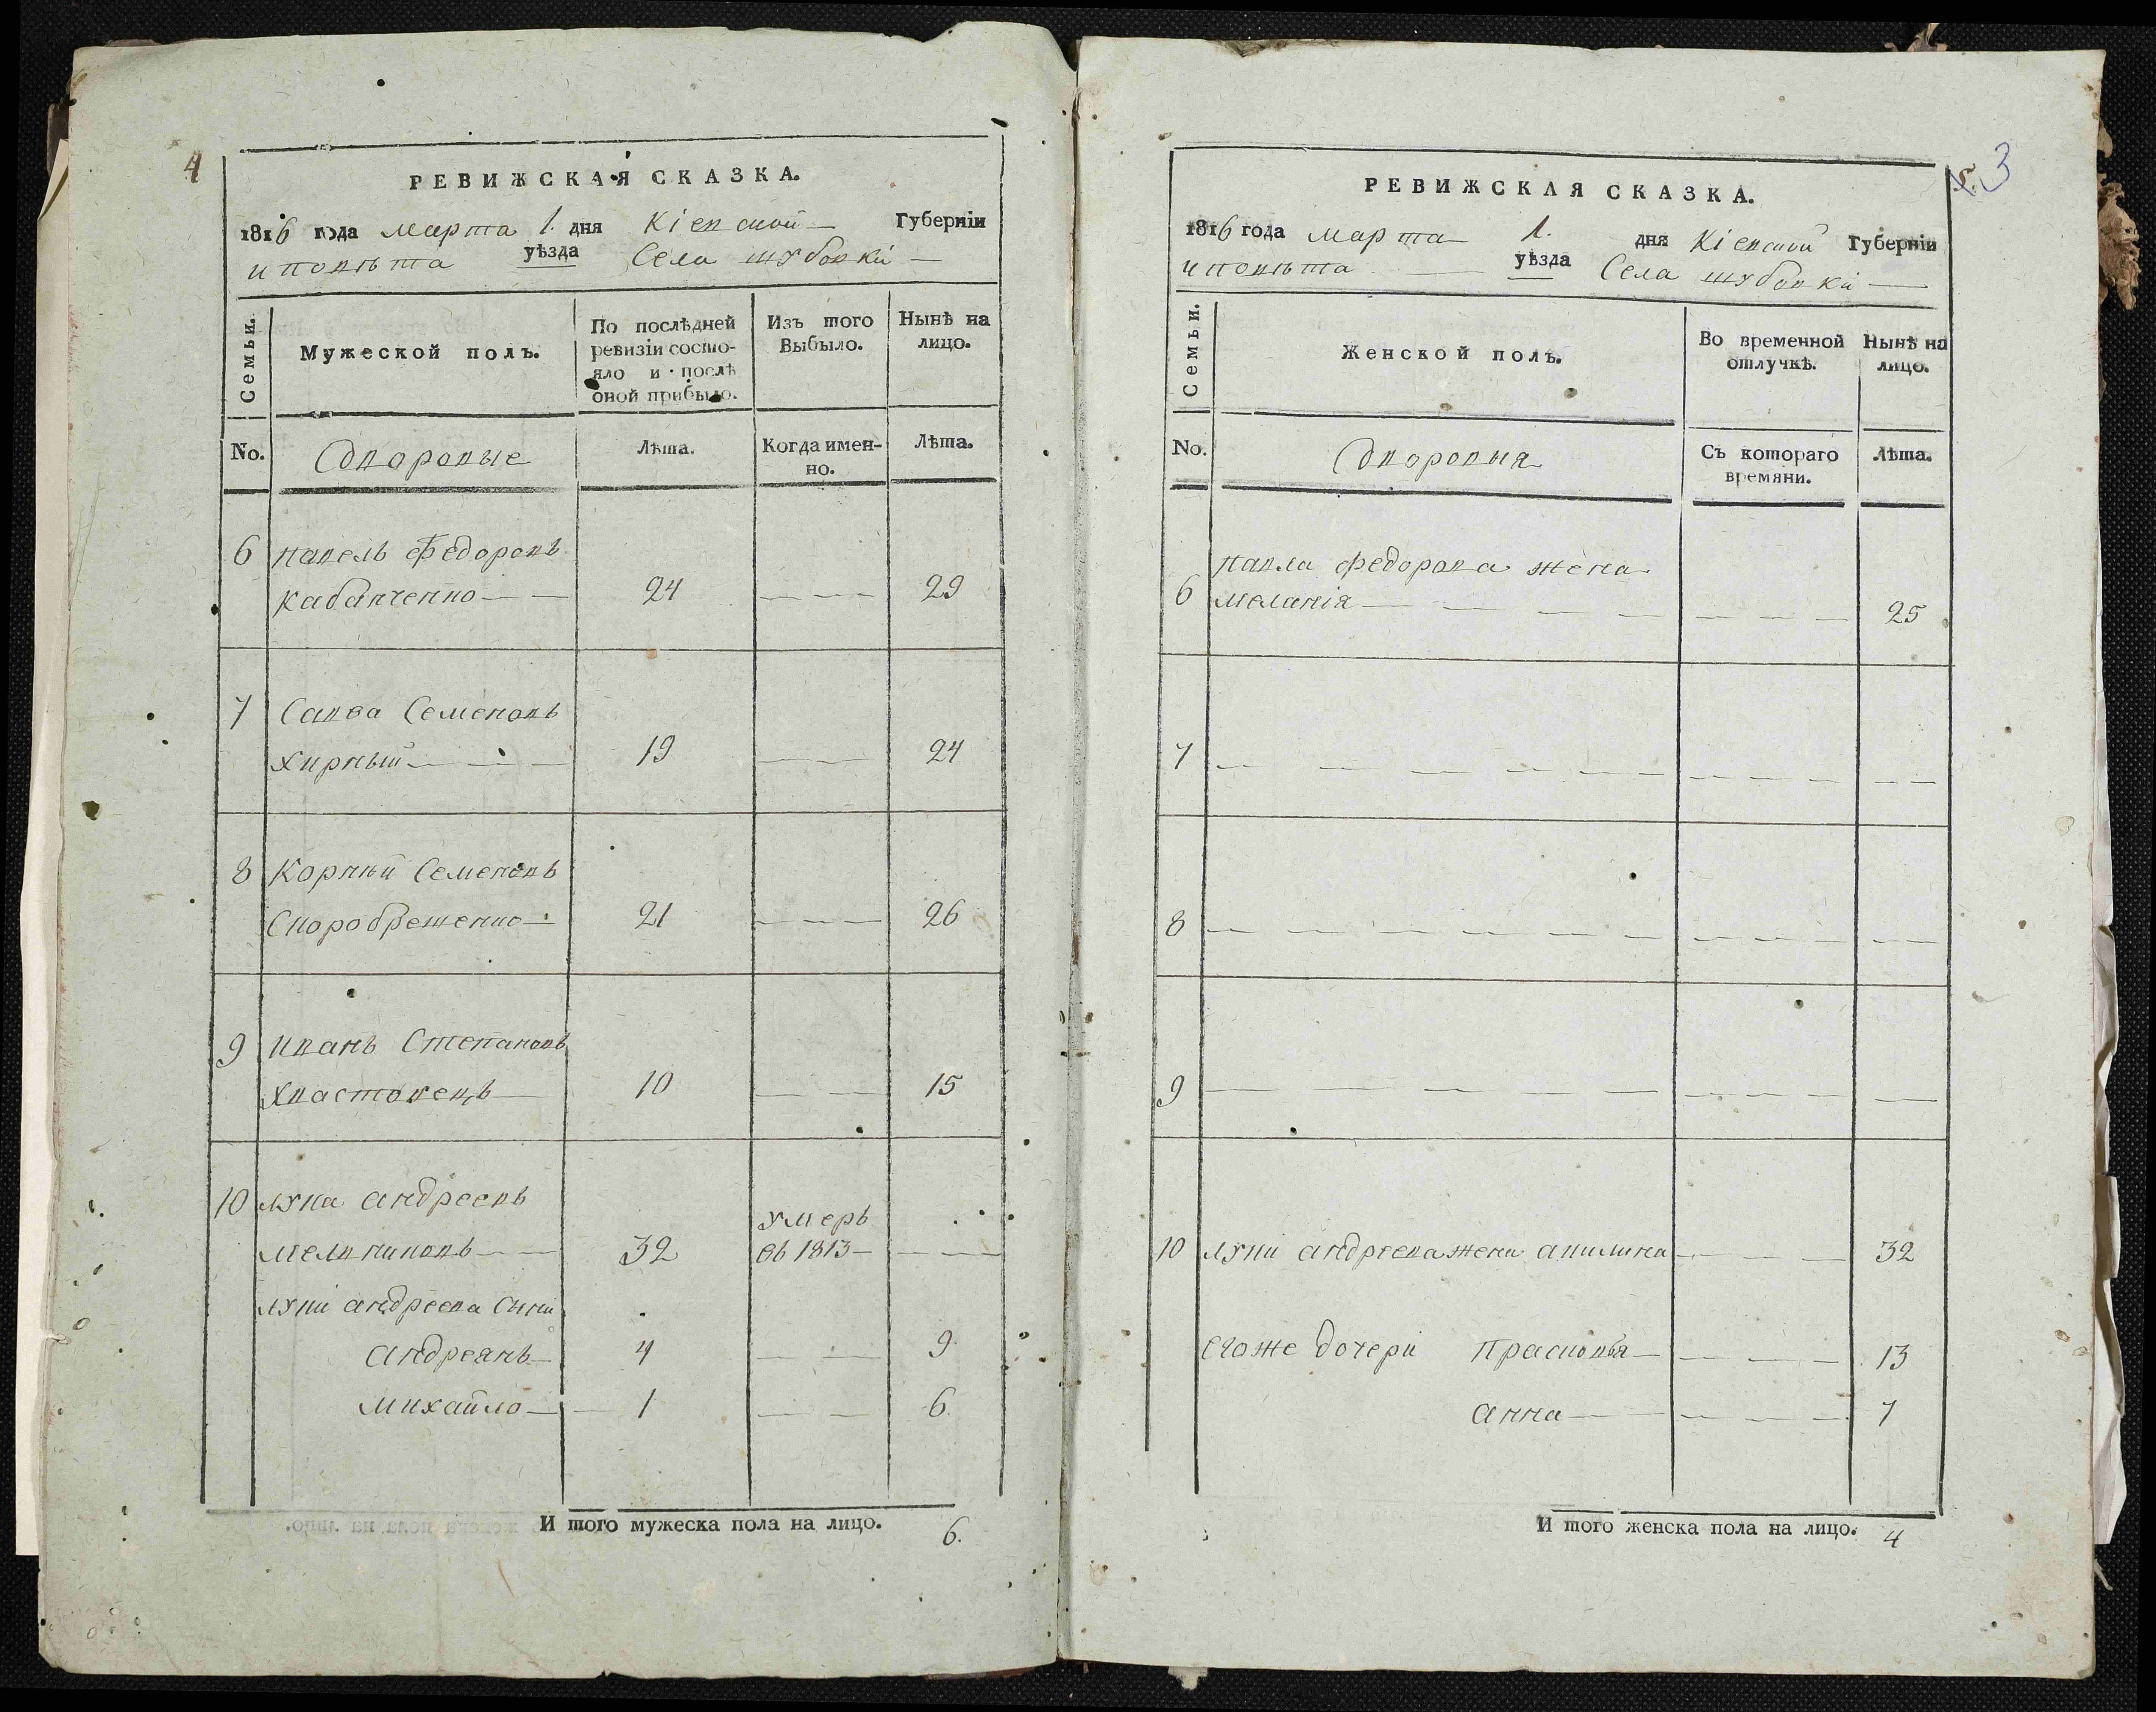 4
РЕВИЖСКАЯ СКАЗКА.
1816 года марта 1. дня Кіевской Губерніи
и повѣта уѣзда Села шубовки
Семьи.
Мужеской полъ.
По послѣдней ревизіи состояло и послѣ оной прибыло.
Изъ того Выбыло.
Нынѣ на лицо.
No.
Дворовые
Лѣта.
Когда именно.
Лѣта.
6 павелъ Федоровъ
кабанченко 24 29
7 Савва Семеновъ
хирный 19 24
8 Корнѣй Семеновъ
Скоробрешенко 21 26
9 иванъ Степановъ
хвастовецъ 10 15
10 лука андреевъ
умеръ
мелниковъ 32 въ 1813
луки андреева сини
андреянъ 4 9
михайло 1 6
И того мужеска пола на лицо. 6.
3
РЕВИЖСКАЯ СКАЗКА.
1816 года марта 1. дня Кіевской Губерніи
и повѣта уѣзда Села шубовки
Семьи.
Женской полъ.
Во временной отлучкѣ.
Нынѣ на лицо.
No.
Дворовыя
Съ котораго времяни.
Лѣта.
павла федорова жена
6 меланія 25
7
8
9
10 луки андреева жена акилина 32
егоже дочери Прасковья 13
анна 7
И того женска пола на лицо. 4